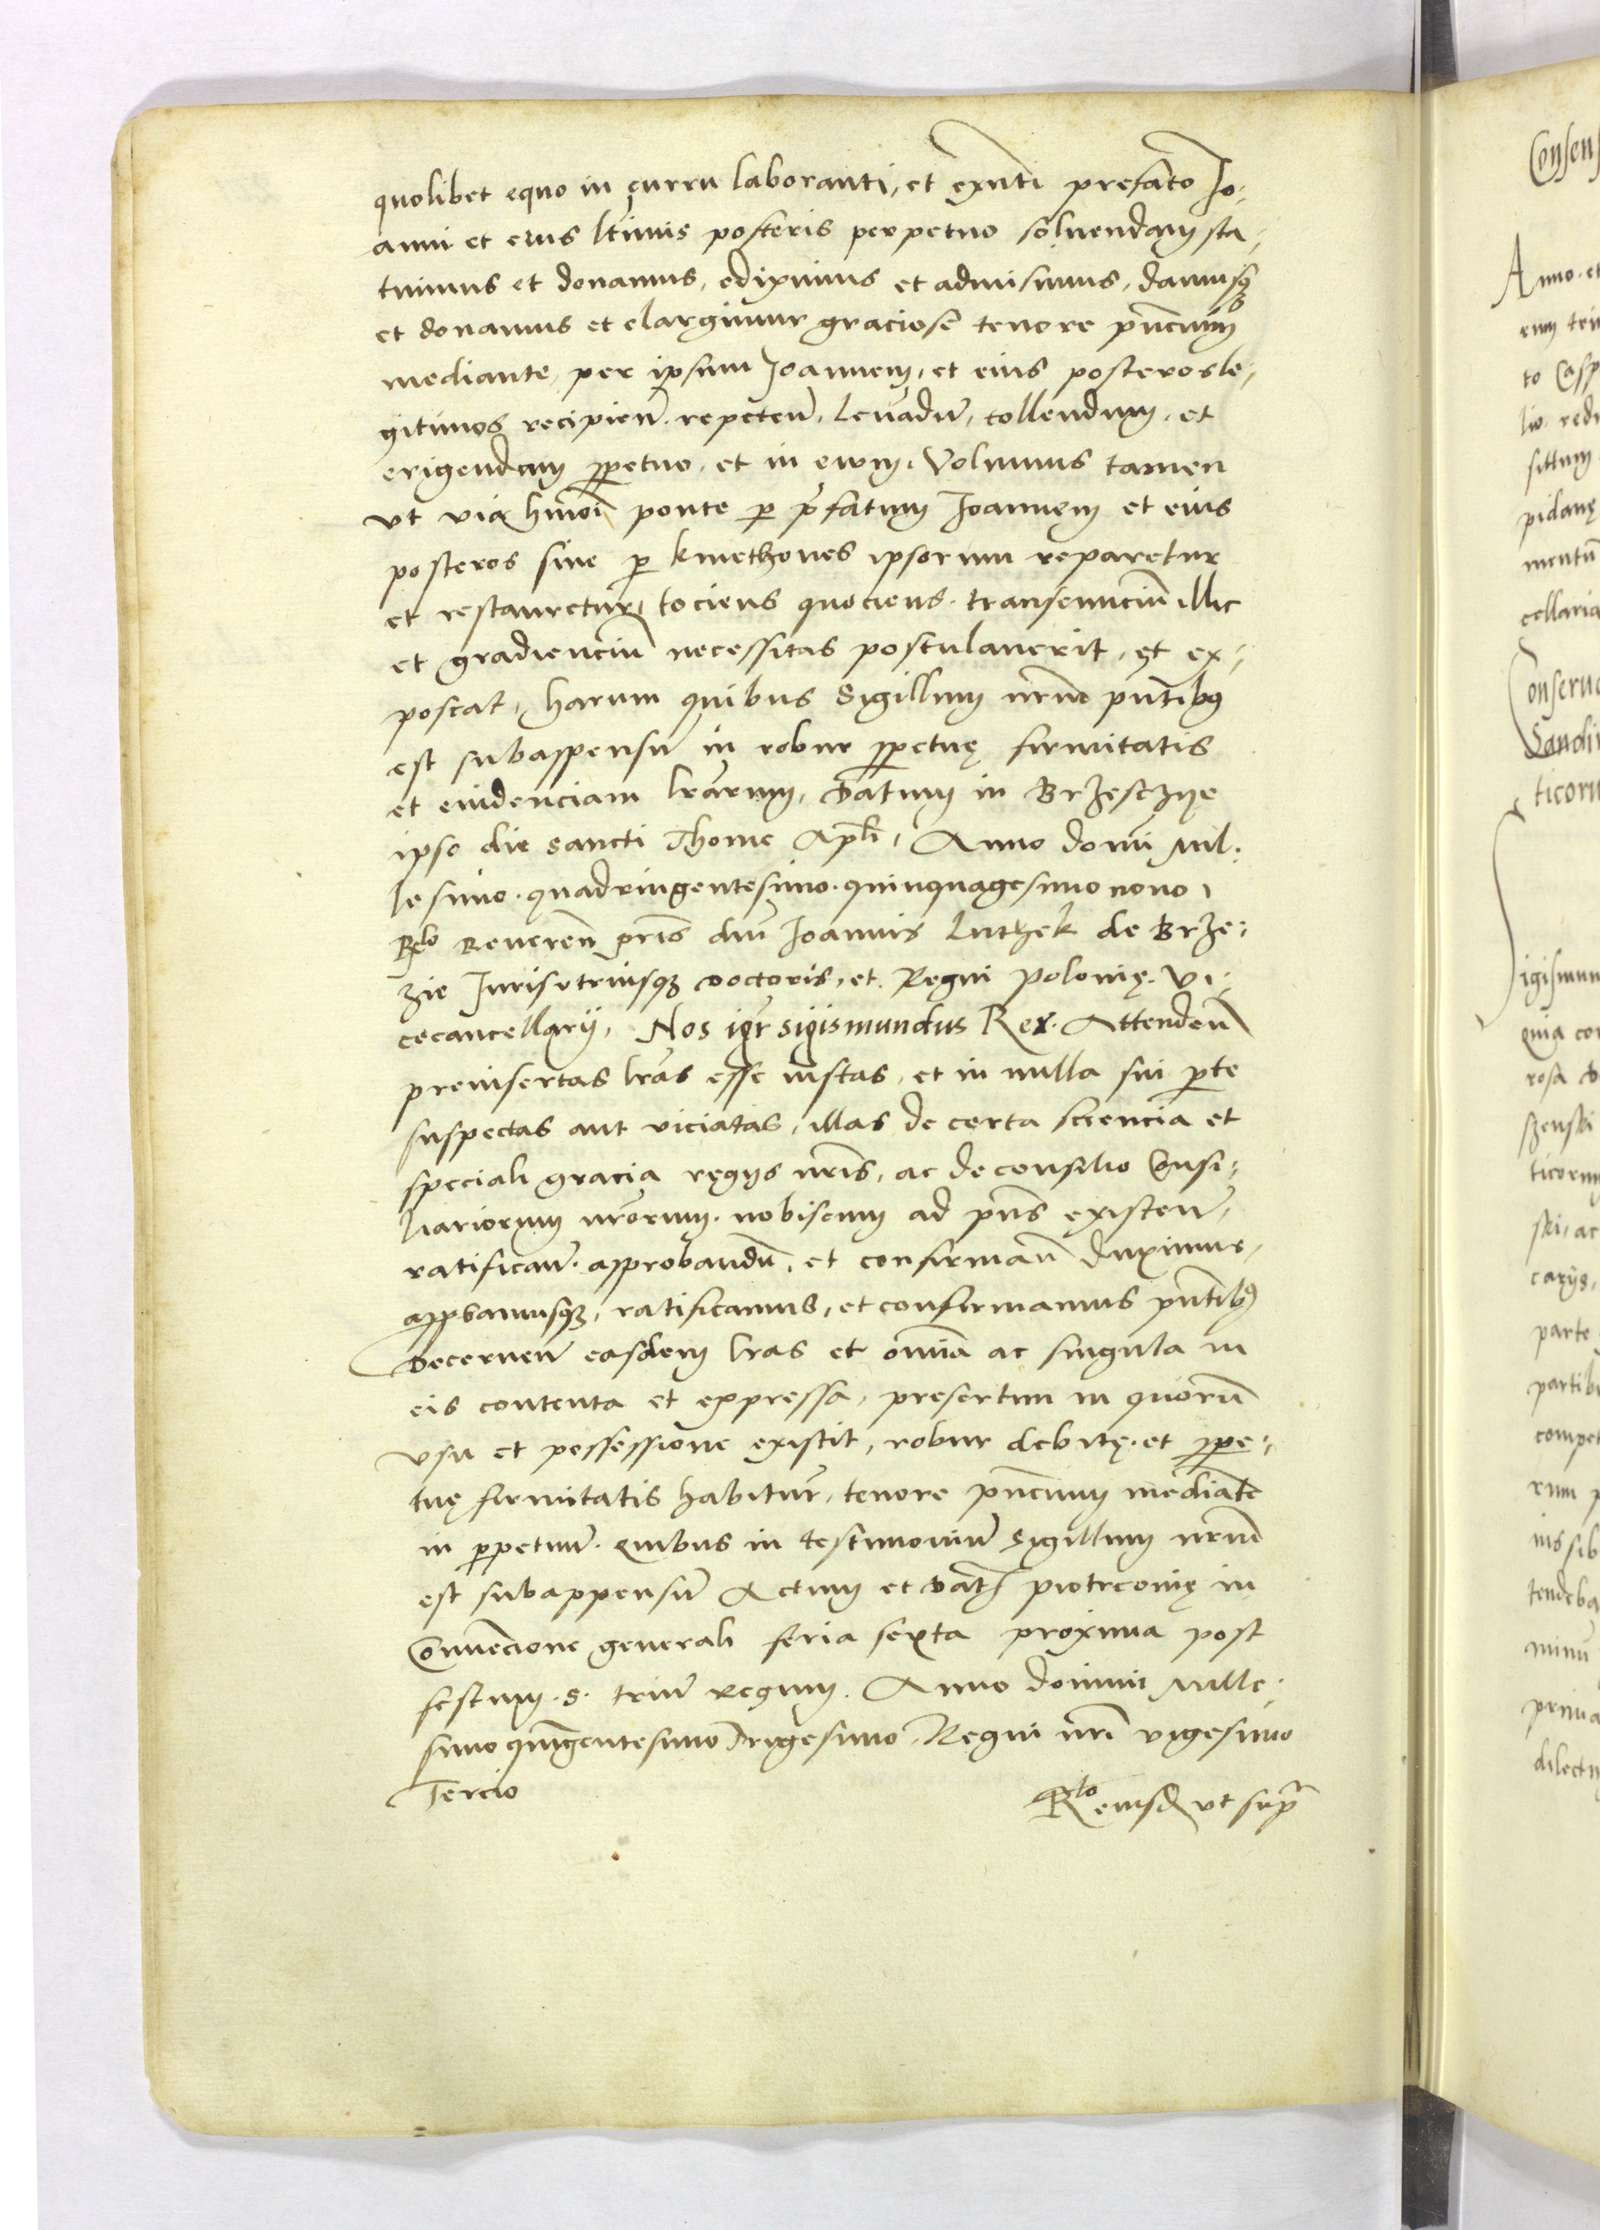 quolibet equo in curru laboranti, et exnti prefato Jo-
anni et eius ltimis posteris perpetuo soluendam sta-
tuimus et donamus, ediximus et admisimus, damusq
et donamus et elargimur graciose tenore pncium
mediante, per ipsum Joannem, et eius posteros le-
gitimos recipien. repeten. leuadu, tollendum, et
erigendam ppetuo, et in ewm. Volumus tamen
vt via hmoi ponte p pfatum Joannem et eius
posteros siue p kmethones ipsorum reparetur
et restauretur, tociens quociens. transeunciu illic
et gradienciu necessitas postulauerit, et ex-
poscat, harum quibus Sigillum nrm pntibq
est subappensu in robur ppetuę firmitatis
et euidenciam lrarum, Datum in Brzesczye
ipso die sancti Thome Apli, Anno domi Mil-
lesimo. quadringentesimo. quinquagesimo nono,
Relo Reueren pris dni Joannis Luthek de Brze-
zie Juris vtriusq Doctoris, et Regni Polonię. Vi-
cecancellarij, Nos igr Sigismundus Rex. Attenden
preinsertas lras esse iustas, et in nulla sui pte
suspectas aut viciatas, illas de certa sciencia et
speciali gracia regijs nris, ac de consilio Consi-
liariorum nrorum. nobiscum ad pns existen,
ratifican. approbandu, et confirman duximus,
appbamusq, ratificamus, et confirmamus pntibq
Decernen easdem lras et omnia ac singula in
eis contenta et expressa, presertim in quoru
vsu et possessione existit, robur debitę. et ppe-
tuę firmitatis habitur, tenore pncium mediate
in ppetuu. Quibus in testimoniu Sigillum nrm
est subappensu Actum et dat Piotrcouię in
Conuencione generali feria sexta proxima post
festum. S. triu regum. Anno domini Mille-
simo quingentesimo Trigesimo, Regni nri vigesimo
Tercio
Rlo eiusd vt supr
Consens
Anno. et